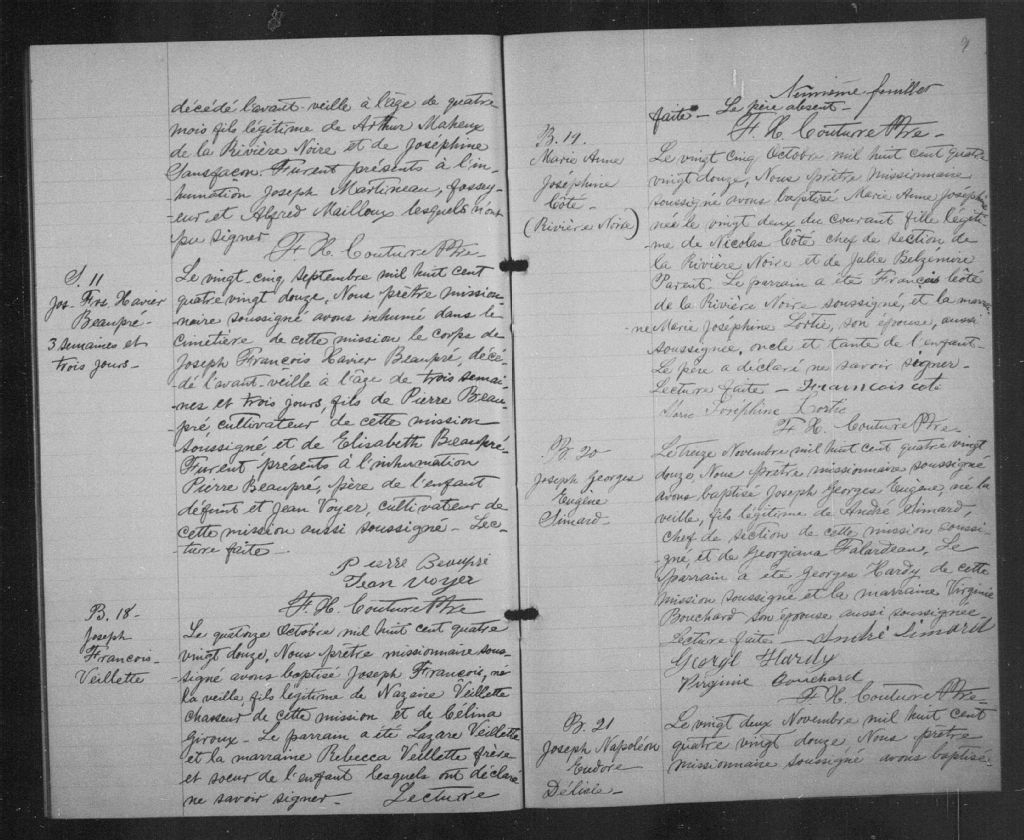 décédé l'avant-veille à l'âge de quatre
mois fils légitime de Arthur Maheux
de la Rivière Noire et de Joséphine
Sansfaçon. Furent présents à l'in-
humation Joseph Martineau, fossoy-
eur, et Alfred Mailloux lesquels n'ont
pu signer
F. H. Couture Ptre-
S. 11
Jos. Frs. Xavier
Beaupré-
3 semaines et
trois jours-
Le vingt-cinq Septembre mil huit cent
quatre vingt douze, Nous prêtre mission-
naire soussigné avons inhumé dans le
cimetière de cette mission le corps de
Joseph François Xavier Beaupré, décé-
dé l'avant-veille à l'âge de trois semai-
nes et trois jours, fils de Pierre Beau-
pré cultivateur de cette mission
soussigné et de Elisabeth Beaupré-
Furent présents à l'inhumation
Pierre Beaupré, père de l'enfant
défunt et Jean Voyer, cultivateur de
cette mission aussi soussigné - Lec-
ture faite-
Pierre Beaupré
Jean Voyer
F. H. Couture Ptre
B. 18-
Joseph
François-
Veillette
Le quatorze Octobre mil huit cent quatre
vingt douze, Nous prêtre missionnaire sous-
signé avons baptisé Joseph François, né
la veille, fils légitime de Nazaire Veillette
chasseur de cette mission et de Célina
Giroux- Le parrain a été Lazare Veillette
et la marraine Rebecca Veillette frère
et soeur de l'enfant lesquels ont déclaré
ne savoir signer- Lecture
9
Neuvième feuillet
faite- Le père absent-
F. H. Couture Ptre-
B. 19.
Marie Anne
Joséphine
Côté-
(Rivière Noire)
Le vingt cinq Octobre mil huit cent quatre
vingt douze, Nous prêtre missionnaire
soussigné avons baptisé Marie Anne Joséphi-
née le vingt deux du courant fille légiti-
me de Nicolas Côté chef de section de
la Rivière Noire et de Julie Belzémire
Parent. Le parrain a été François Côté
de la Rivière Noire soussigné, et la marrai-
ne Marie Joséphine Lortie, son épouse, aussi
soussignée, oncle et tante de l'enfant-
Le père a déclaré ne savoir signer-
Lecture faite- Francois coté
Marie Joséphine Lortie
F. H. Couture Ptre-
B. 20
Joseph Georges
Eugène
Simard-
Le treize Novembre mil huit cent quatre vingt
douze, Nous prêtre missionnaire soussigné
avons baptisé Joseph Georges Eugène, né la
veille, fils légitime de André Simard,
chef de section de cette mission soussi-
gné et de Georgiana Falardeau. Le
parrain a été Georges Hardy de cette
mission soussigné et la marraine Virginie
Bouchard son épouse aussi soussignée
Lecture faite- André Simard
George Hardy
Virginie Bouchard
F. H. Couture Ptre-
B. 21
Joseph Napoléon
Eudore
Délisle-
Le vingt deux Novembre mil huit cent
quatre vingt douze Nous prêtre
missionnaire soussigné avons baptisé